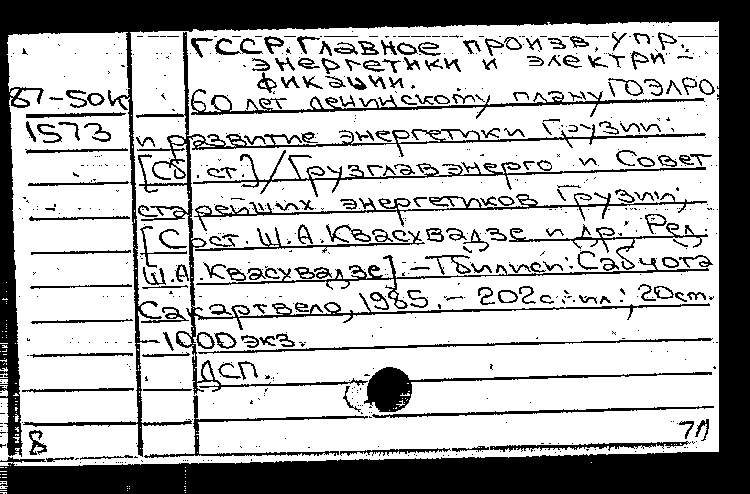 ГССР. Главное произв. упр.
энергетики и электри-
фикации.
87-50к 60 лет ленинскому плану ГОЭЛРО
1573 и развитие энергетики Грузии:
[Сб. ст.] / Грузглавэнерго и Совет
старейших энергетиков Грузии;
[Сост. Ш.А. Квасхвадзе и др.; Ред.
Ш.А. Квасхвадзе]. - Тбилиси: Сабчота
Сакартвело, 1985. - 202с.: ил.; 20см.
- 1000 экз.
ДСП.
8